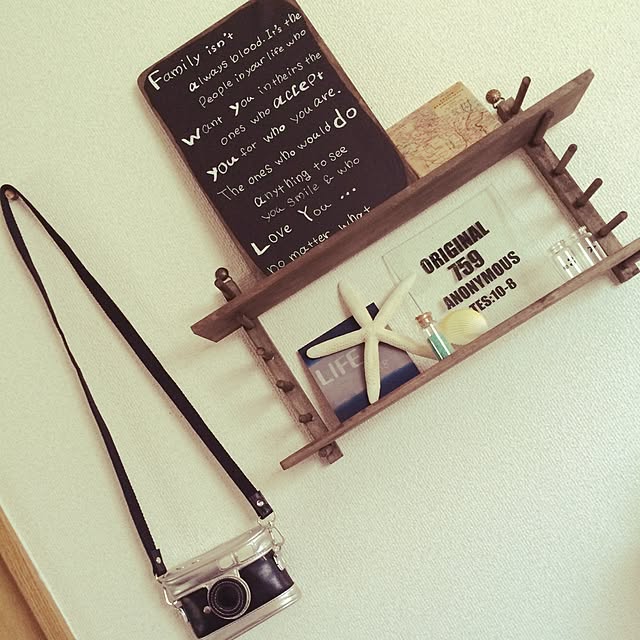 Family isn't
always blood. It's the
People in your life who
Want you in theirs the
ones who accept
you for who you are.
The ones who would do
anything to see
you smile & who
Love You ...
no matter what
ORIGINAL
759
ANONYMOUS
TES:10-8
LIFE